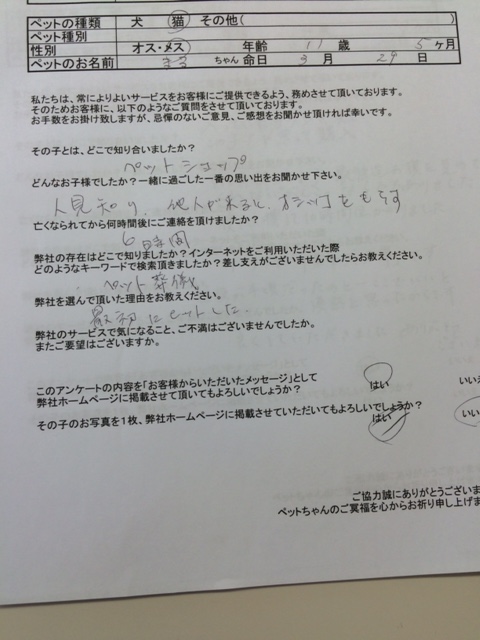 ペットの種類 犬 猫 その他( )
ペット種別
性別 オス・メス 年齢 11 歳 5 ヶ月
ペットのお名前 まる ちゃん 命日 3 月 29 日
私たちは、常によりよいサービスをお客様にご提供できるよう、務めさせて頂いております。
そのためお客様に、以下のようなご質問をさせて頂いております。
お手数をお掛け致しますが、忌憚のないご意見、ご感想をお聞かせ頂ければ幸いです。
その子とは、どこで知り合いましたか？
ペットショップ
どんなお子様でしたか？一緒に過ごした一番の思い出をお聞かせ下さい。
人見知り、他人が来ると、オシッコをもらす
亡くなられてから何時間後にご連絡を頂けましたか？
6時間
弊社の存在はどこで知りましたか？インターネットをご利用いただいた際
どのようなキーワードで検索頂きましたか？差し支えがございませんでしたらお教えください。
ペット葬儀
弊社を選んで頂いた理由をお教えください。
最初にヒットした.
弊社のサービスで気になること、ご不満はございませんでしたか。
またご要望はございますか。
このアンケートの内容を「お客様からいただいたメッセージ」として
弊社ホームページに掲載させて頂いてもよろしいでしょうか？ はい いいえ
その子のお写真を1枚、弊社ホームページに掲載させていただいてもよろしいでしょうか？
はい いい
ご協力誠にありがとうございま
ペットちゃんのご冥福を心からお祈り申し上げま